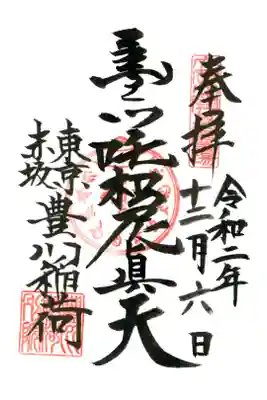 奉拝
令和二年
十二月六日
豊川吒枳尼眞天
東京
赤坂
豊川稲荷